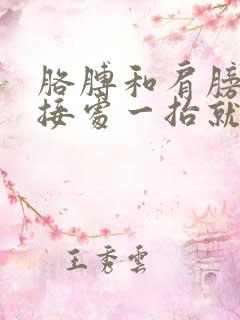 胳膊和肩膀
接处一抬就
王秀雲